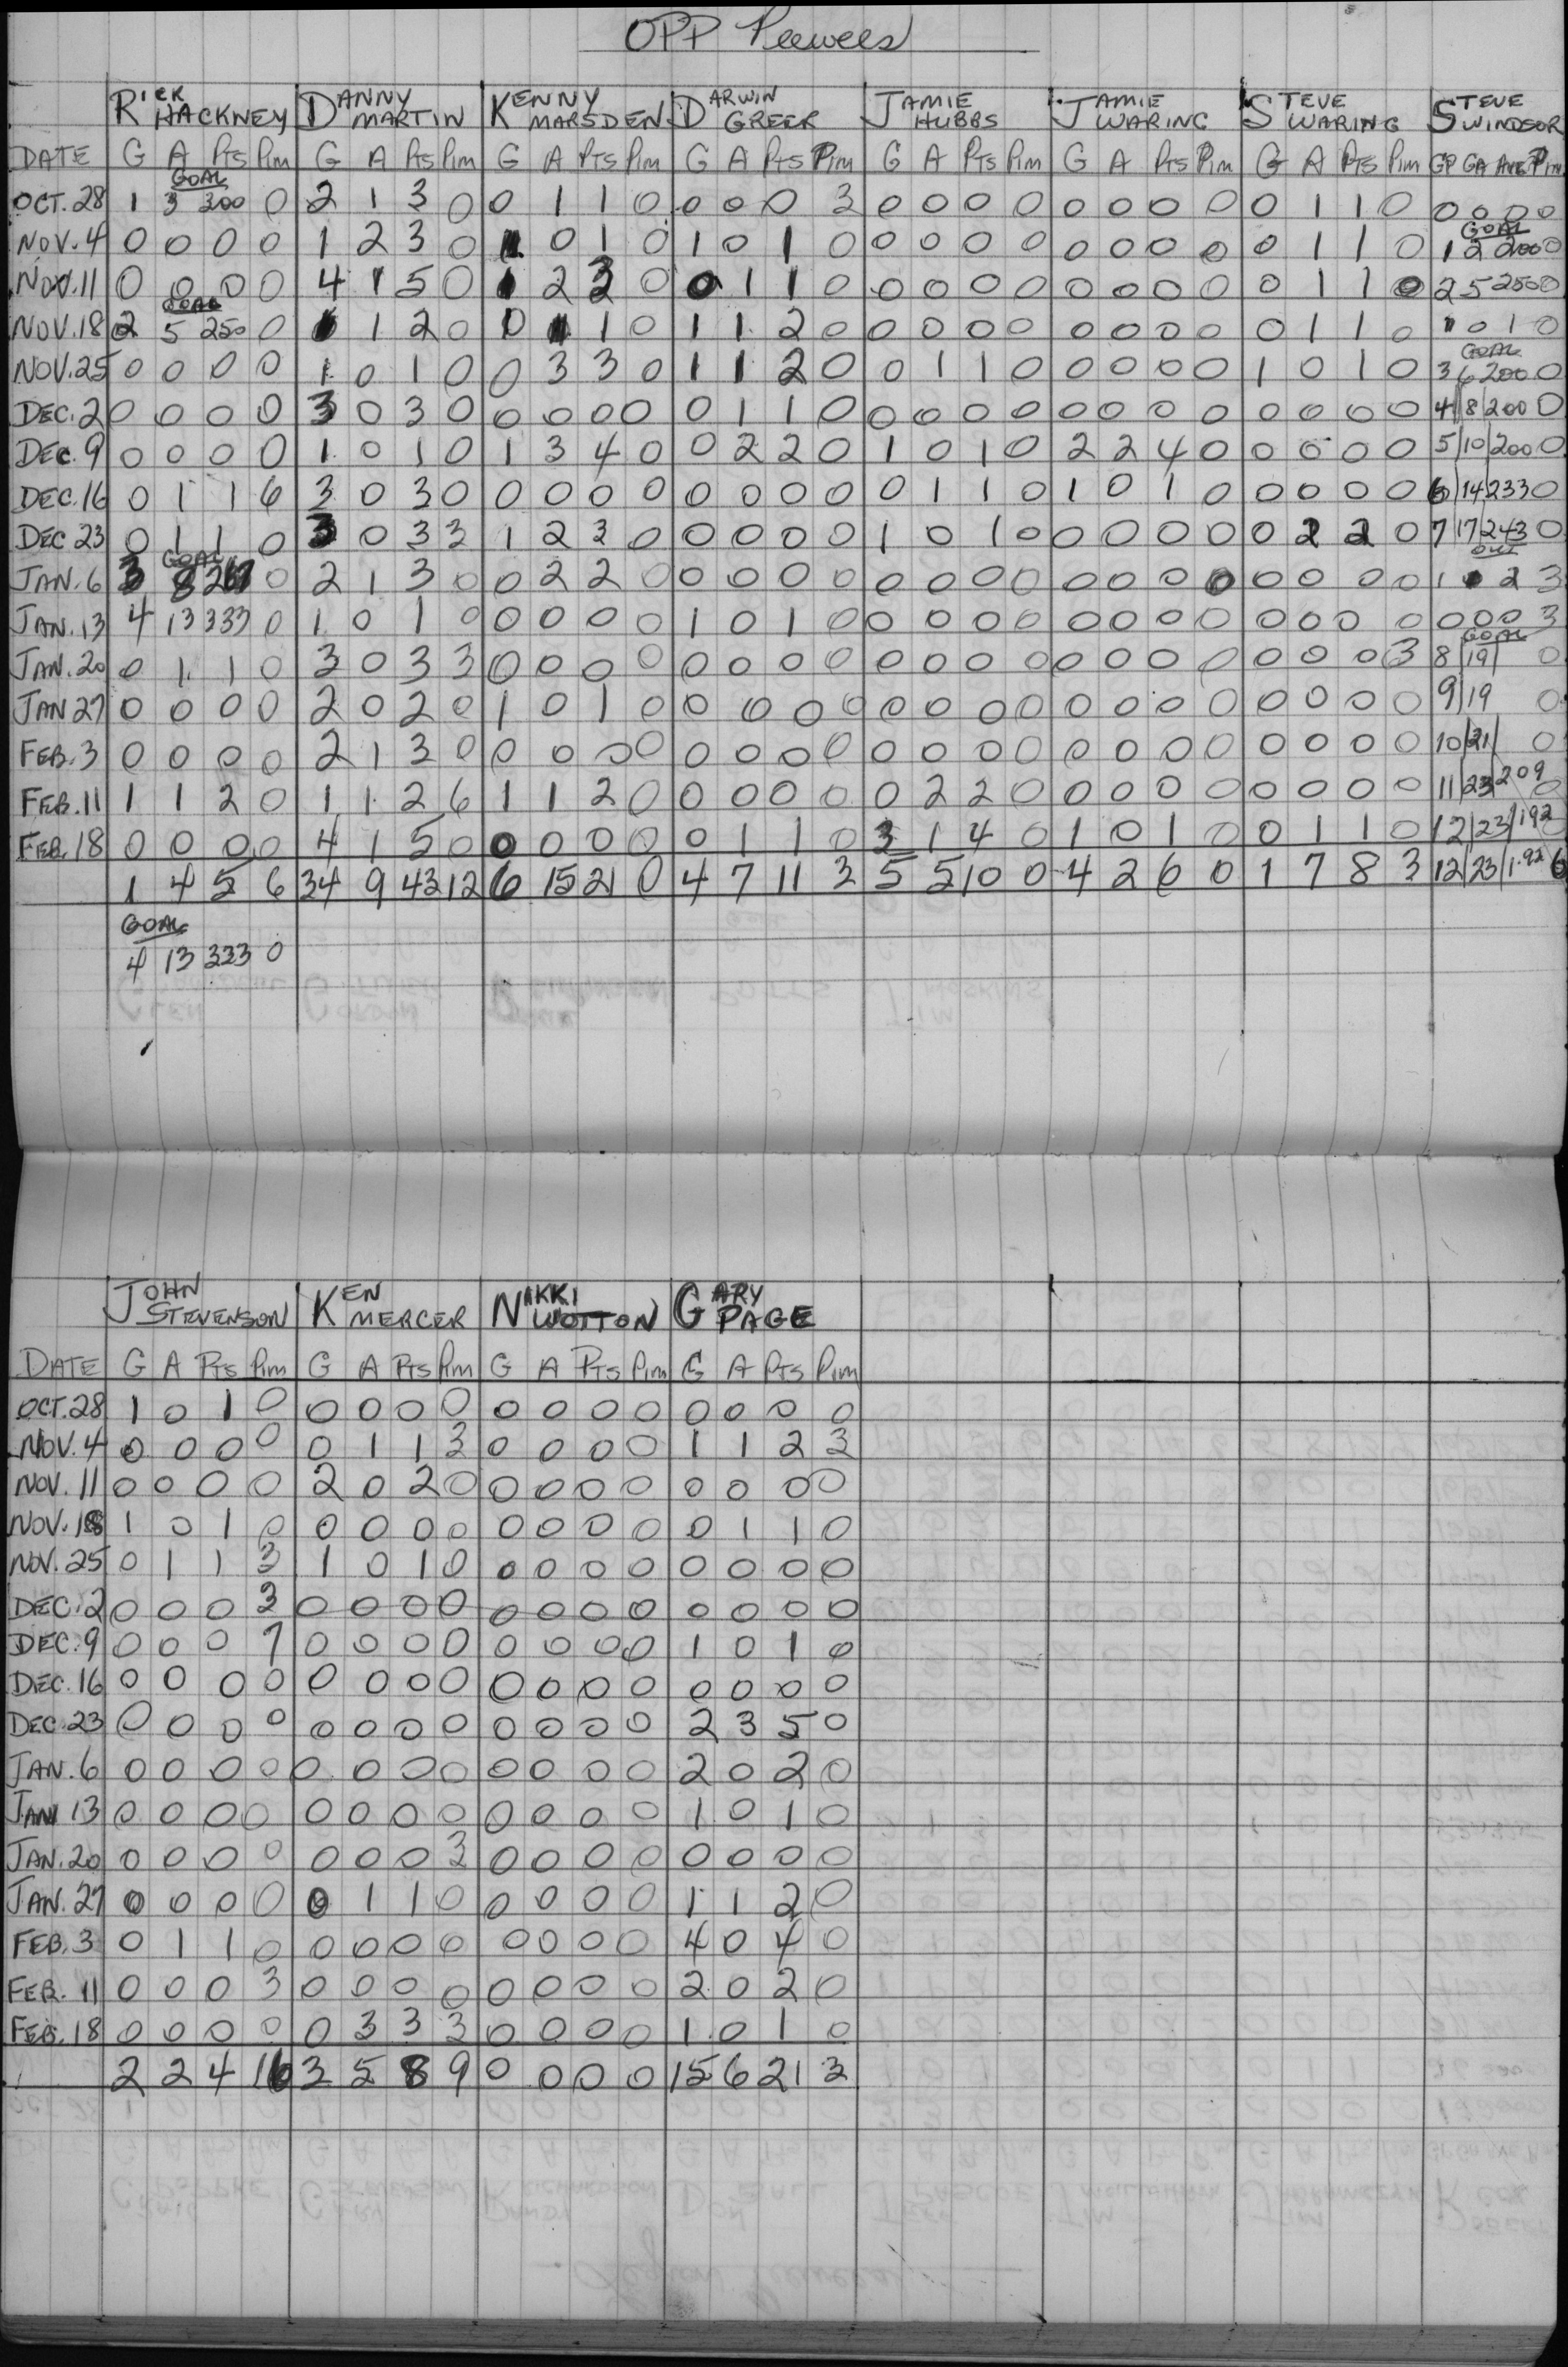 OPP Peewees
RICK HACKNEY DANNY MARTIN KENNY MARSDEN DARWIN GREER JAMIE HUBBS JAMIE WARING STEVE WARING STEVE WINDSOR
DATE G A PTS PIM G A PTS PIM G A PTS PIM G A PTS PIM G A PTS PIM G A PTS PIM G A PTS PIM GP GA AVE PIM
GOAL
OCT. 28 1 3 300 0 2 1 3 0 0 1 1 0 0 0 0 3 0 0 0 0 0 0 0 0 0 1 1 0 0 0 0 0
GOAL
NOV. 4 0 0 0 0 1 2 3 0 1 0 1 0 1 0 1 0 0 0 0 0 0 0 0 0 0 1 1 0 1 2 200 0
NOV. 11 0 0 0 0 4 1 5 0 1 2 3 0 0 1 1 0 0 0 0 0 0 0 0 0 0 1 1 0 2 5 250 0
GOAL
NOV. 18 2 5 250 0 1 1 2 0 1 0 1 1 2 0 0 0 0 0 0 0 0 0 0 1 1 0 1 0 1 0
GOAL
NOV. 25 0 0 0 0 1 0 1 0 0 3 3 0 1 1 2 0 0 1 1 0 0 0 0 0 1 0 1 0 3 6 200 0
DEC. 2 0 0 0 0 3 0 3 0 0 0 0 0 0 1 1 0 0 0 0 0 0 0 0 0 0 0 0 0 4 8 200 0
DEC. 9 0 0 0 0 1 0 1 0 1 3 4 0 0 2 2 0 1 0 1 0 2 2 4 0 0 0 0 0 5 10 200 0
DEC. 16 0 1 1 6 3 0 3 0 0 0 0 0 0 0 0 0 0 1 1 0 1 0 1 0 0 0 0 0 6 14 233 0
DEC 23 0 1 1 0 3 0 3 3 1 2 3 0 0 0 0 0 1 0 1 0 0 0 0 0 0 2 2 0 7 17 243 0
GOAL OUT
JAN. 6 3 8 267 0 2 1 3 0 0 2 2 0 0 0 0 0 0 0 0 0 0 0 0 0 0 0 0 0 1 2 3
JAN. 13 4 13 333 0 1 0 1 0 0 0 0 0 1 0 1 0 0 0 0 0 0 0 0 0 0 0 0 0 0 0 0 3
GOAL
JAN. 20 0 1 1 0 3 0 3 3 0 0 0 0 0 0 0 0 0 0 0 0 0 0 0 0 0 0 0 3 8 19 0
JAN 27 0 0 0 0 2 0 2 0 1 0 1 0 0 0 0 0 0 0 0 0 0 0 0 0 0 0 0 0 9 19 0
FEB. 3 0 0 0 0 2 1 3 0 0 0 0 0 0 0 0 0 0 0 0 0 0 0 0 0 0 0 0 0 10 21 0
FEB. 11 1 1 2 0 1 1 2 6 1 1 2 0 0 0 0 0 0 2 2 0 0 0 0 0 0 0 0 0 11 23 209 0
FEB. 18 0 0 0 0 4 1 5 0 0 0 0 0 0 1 1 0 3 1 4 0 1 0 1 0 0 1 1 0 12 23 192 0
1 4 5 6 34 9 43 12 6 15 21 0 4 7 11 3 5 5 10 0 4 2 6 0 1 7 8 3 12 23 1.92 6
GOAL
4 13 333 0
JOHN STEVENSON KEN MERCER NIKKI WOTTON GARY PAGE
DATE G A PTS PIM G A PTS PIM G A PTS PIM G A PTS PIM
OCT. 28 1 0 1 0 0 0 0 0 0 0 0 0 0 0 0 0
NOV. 4 0 0 0 0 0 1 1 3 0 0 0 0 1 1 2 3
NOV. 11 0 0 0 0 2 0 2 0 0 0 0 0 0 0 0 0
NOV. 18 1 0 1 0 0 0 0 0 0 0 0 0 0 1 1 0
NOV. 25 0 1 1 3 1 0 1 0 0 0 0 0 0 0 0 0
DEC. 2 0 0 0 3 0 0 0 0 0 0 0 0 0 0 0 0
DEC. 9 0 0 0 7 0 0 0 0 0 0 0 0 1 0 1 0
DEC. 16 0 0 0 0 0 0 0 0 0 0 0 0 0 0 0 0
DEC. 23 0 0 0 0 0 0 0 0 0 0 0 0 2 3 5 0
JAN. 6 0 0 0 0 0 0 0 0 0 0 0 0 2 0 2 0
JAN 13 0 0 0 0 0 0 0 0 0 0 0 0 1 0 1 0
JAN. 20 0 0 0 0 0 0 0 3 0 0 0 0 0 0 0 0
JAN. 27 0 0 0 0 0 1 1 0 0 0 0 0 1 1 2 0
FEB. 3 0 1 1 0 0 0 0 0 0 0 0 0 4 0 4 0
FEB. 11 0 0 0 3 0 0 0 0 0 0 0 0 2 0 2 0
FEB. 18 0 0 0 0 0 3 3 3 0 0 0 0 1 0 1 0
2 2 4 16 3 5 8 9 0 0 0 0 15 6 21 3